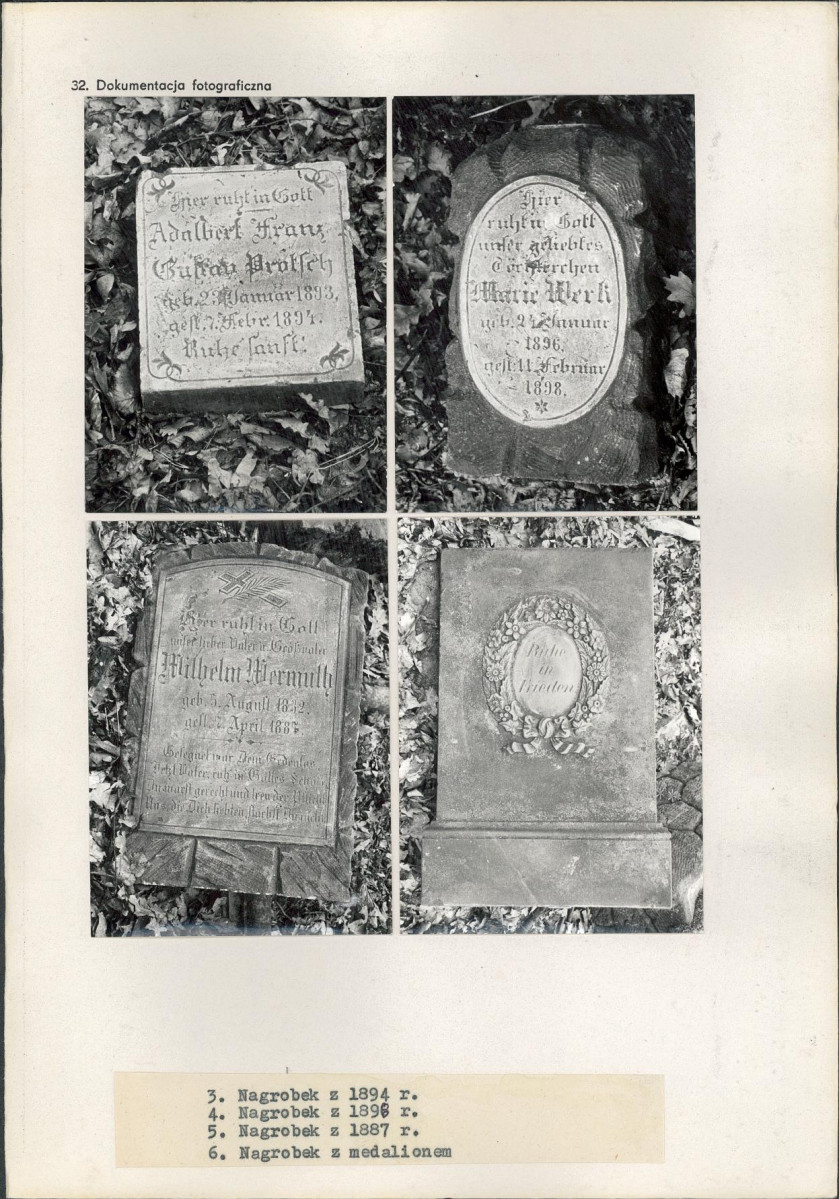 32. Dokumentacja fotograficzna
Hier ruht in Gott
Adalbert Franz
Gustav Protsch
geb. 2. Januar 1893,
gest. 7. Febr. 1894.
Ruhe sanft!
Hier
ruht in Gott
unser geliebtes
Marie Werk
geb. 24. Januar
1896.
gest. 11. Februar
1898.
Hier ruht in Gott
unser lieber Vater u.
Wilhelm Wermuth
geb. 5. August
gest. 7. April 1887
Gesegnet war Dein
Vater, ruh in Gottes
warst gerecht und treu der
die Dich liebten,
Ruhe
in
Frieden
3. Nagrobek z 1894 r.
4. Nagrobek z 1898 r.
5. Nagrobek z 1887 r.
6. Nagrobek z medalionem